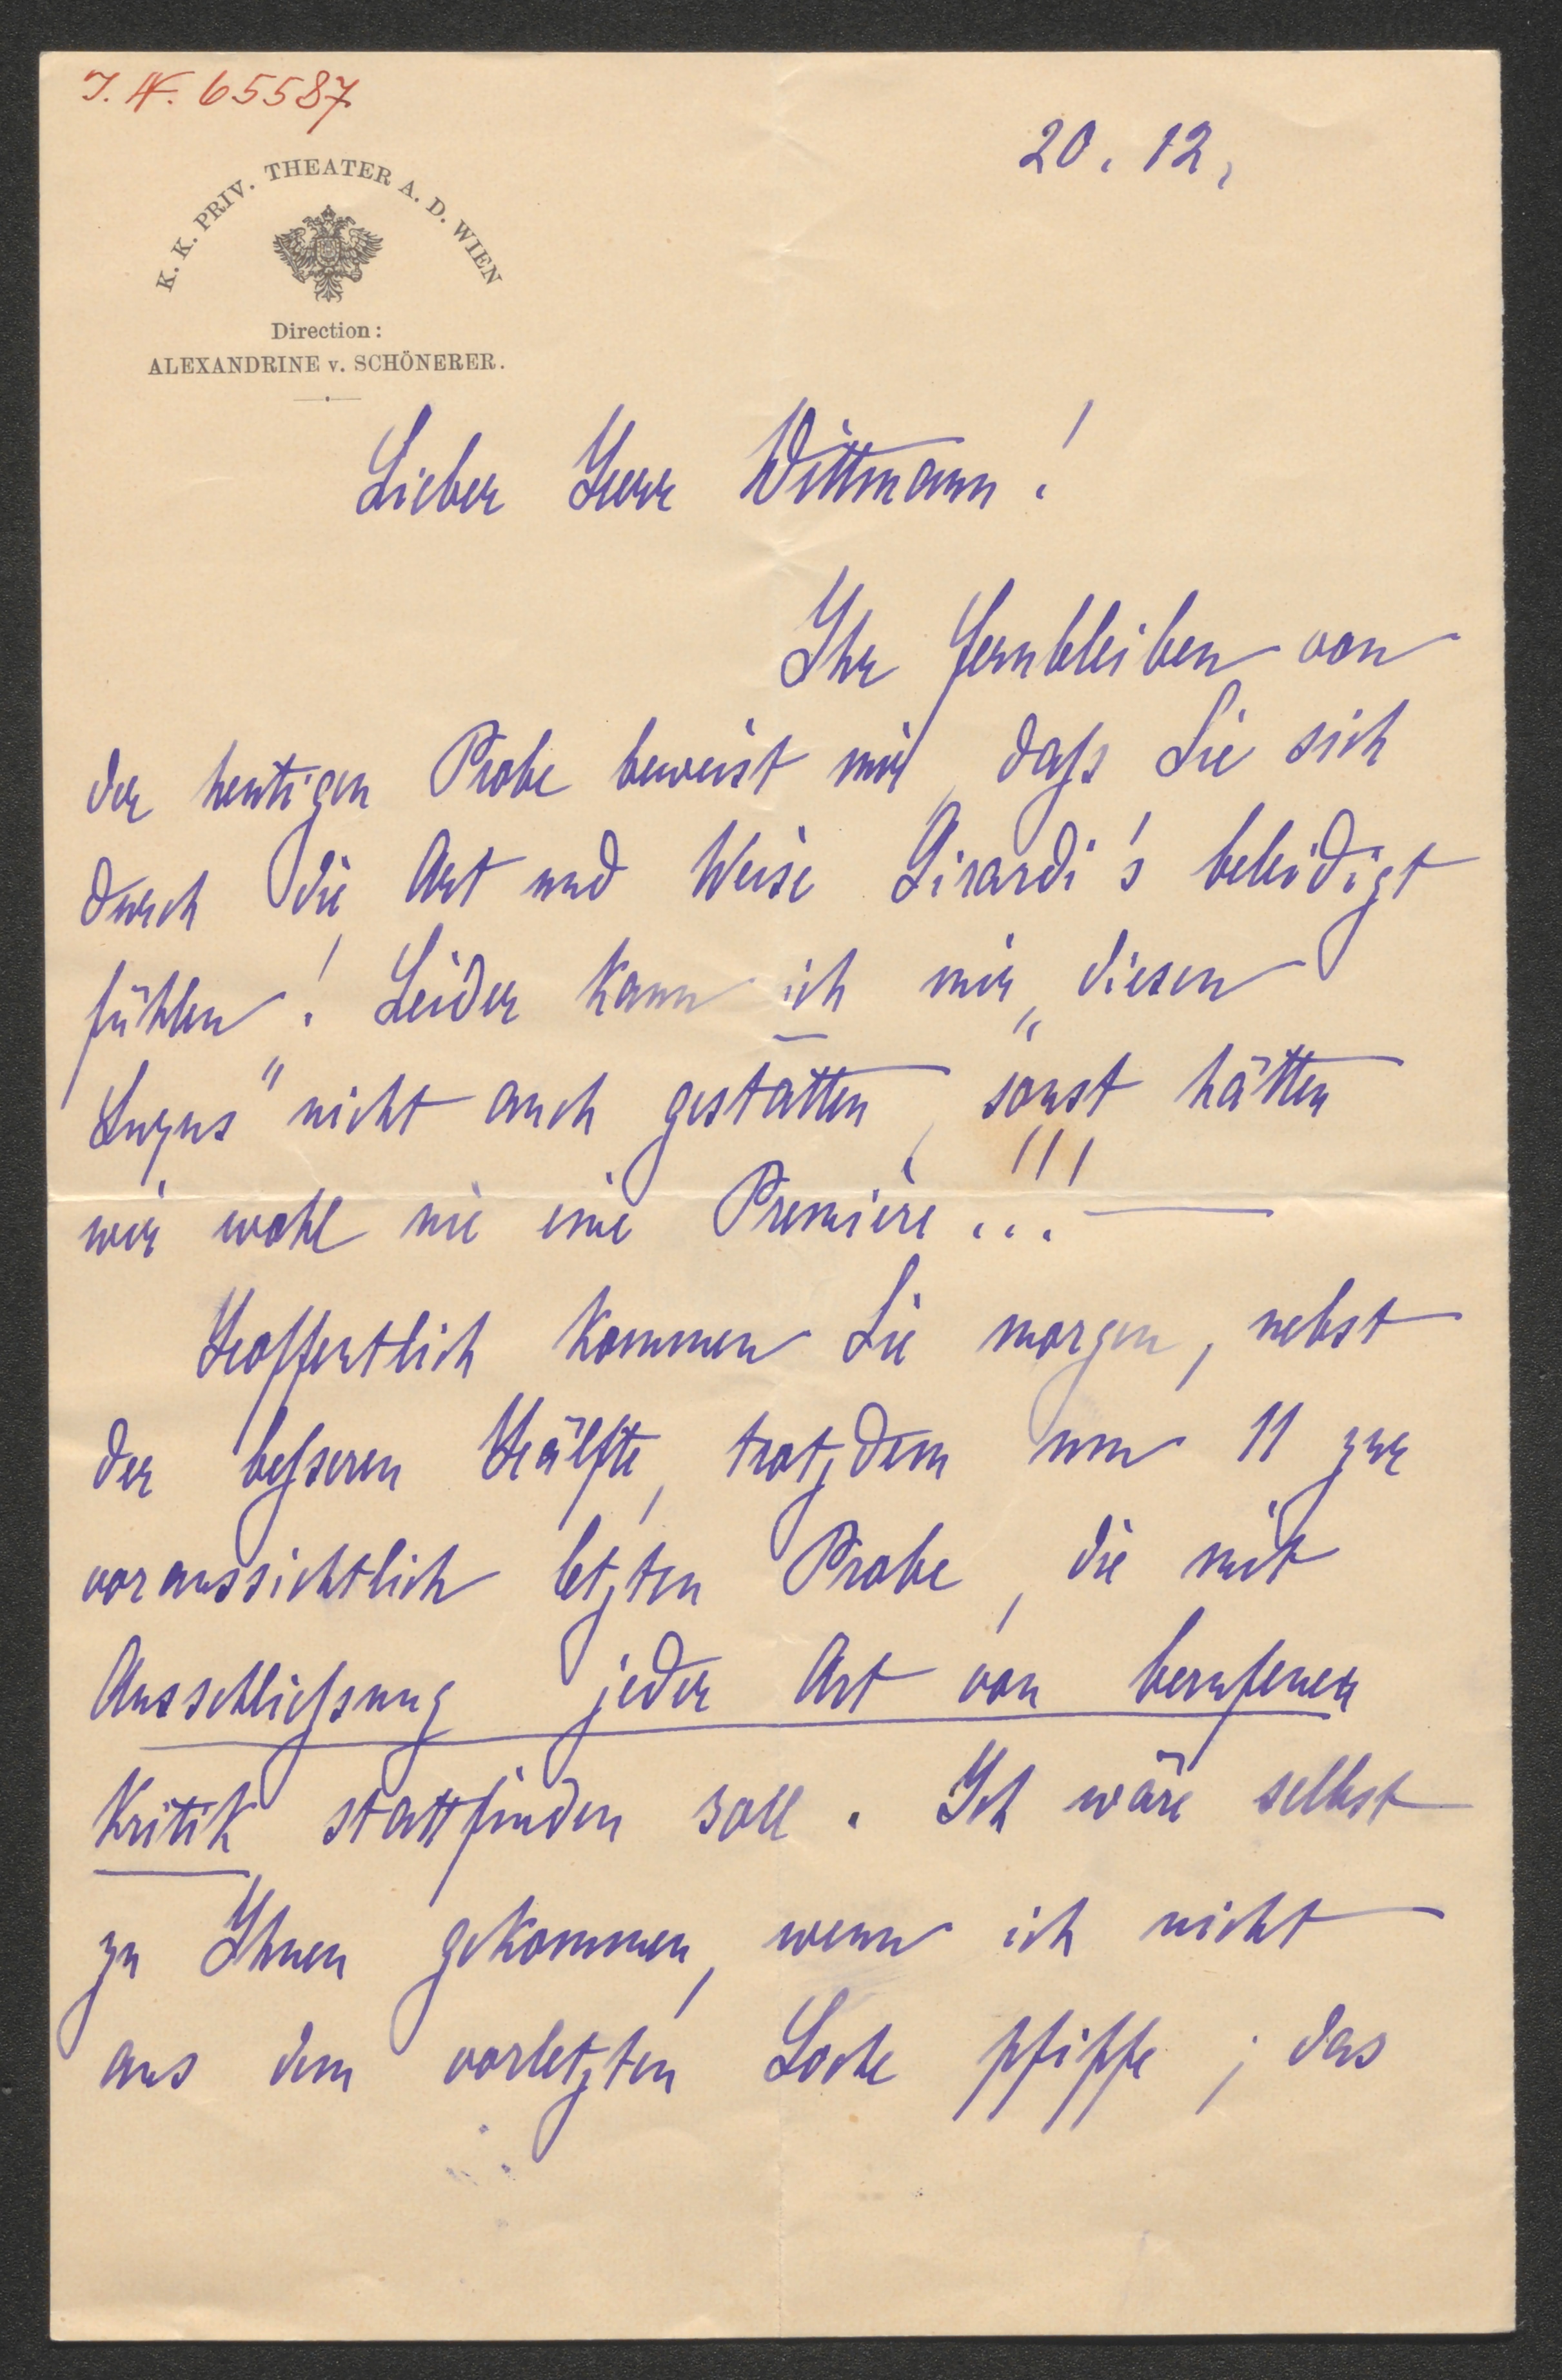 I. N. 65587
20. 12.
K. K. PRIV. THEATER A. D. WIEN
Direction:
ALEXANDRINE v. SCHÖNERER.
Lieber Herr Wittmann!
Ihr Fernbleiben von
der heutigen Probe beweist mir, daſs Sie sich
durch die Art und Weise Girardi's beleidigt
fühlen! Leider kann ich mir „diesen
Luxus" nicht auch gestatten, sonst hätten
wir wohl nie eine Première!!!—
Hoffentlich kommen Sie morgen, nebst
der beſseren Hälfte, trotzdem um 11 zur
voraussichtlich letzten Probe, die mit
Ausschlieſsung jeder Art von berufener
Kritik stattfinden soll. Ich wäre selbst
zu Ihnen gekommen, wenn ich nicht
aus dem vorletzten Loche pfiffe; das